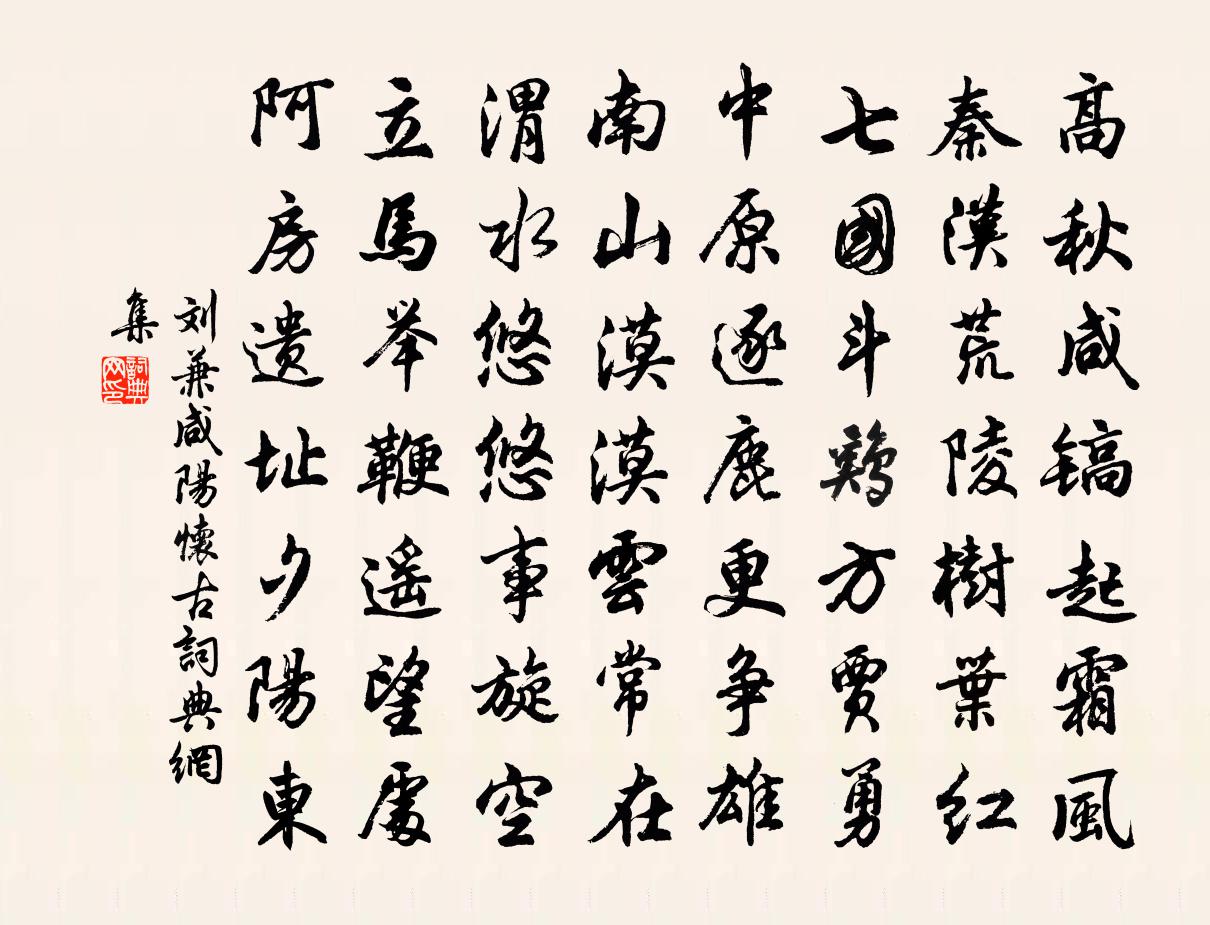 高秋咸镐起霜風
秦漢荒陵樹葉紅
七國斗鷄方賈勇
中原逐鹿更争雄
南山漠漠雲常在
渭水悠悠事旋空
立馬举鞭遥望處
阿房遗址夕陽東
刘兼咸陽懷古詞典網
集
詞典网印